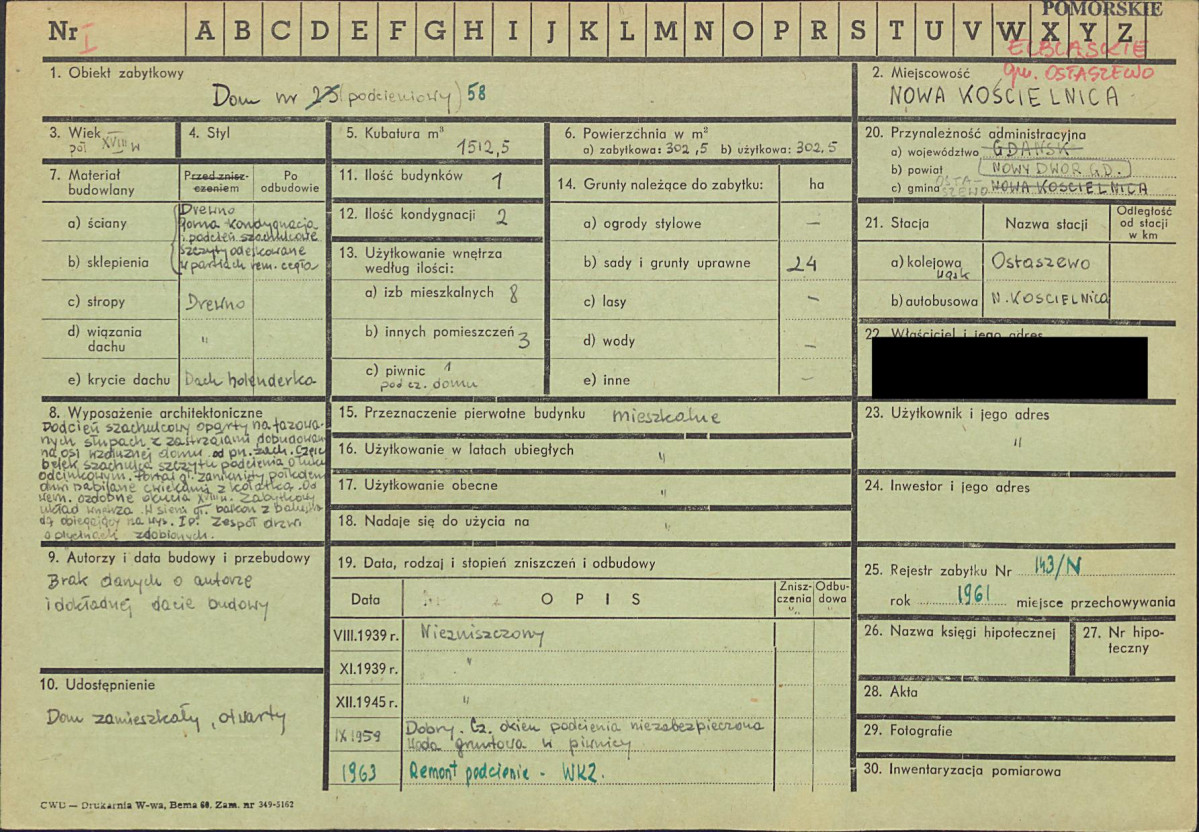 Nr I A B C D E F G H I J K L M N O P R S T U V W X Y Z
POMORSKIE
ELBLĄSKIE
gm. OSTASZEWO
1. Obiekt zabytkowy
Dom nr 25 (podcieniowy) 58
2. Miejscowość
NOWA KOŚCIELNICA
3. Wiek
poł XVIII w
4. Styl
5. Kubatura m³
1512,5
6. Powierzchnia w m²
a) zabytkowa: 302,5 b) użytkowa: 302,5
20. Przynależność administracyjna
a) województwo GDAŃSK
b) powiat NOWY DWÓR GD.
c) gmina OSTASZEWO NOWA KOSCIELNICA
7. Materiał budowlany
Przed zniszczeniem
Po odbudowie
a) ściany
Drewno
górna kondygnacja
i podcień szachulcowe
szczyty odeskowane
w partiach rem. cegła
b) sklepienia
c) stropy Drewno
d) wiązania dachu "
e) krycie dachu Dach holenderka
11. Ilość budynków 1
12. Ilość kondygnacji 2
13. Użytkowanie wnętrza według ilości:
a) izb mieszkalnych 8
b) innych pomieszczeń 3
c) piwnic 1
pod cz. domu
14. Grunty należące do zabytku: ha
a) ogrody stylowe —
b) sady i grunty uprawne 24
c) lasy –
d) wody –
e) inne –
21. Stacja
Nazwa stacji
Odległość od stacji w km
a) kolejowa wąsk Ostaszewo
b) autobusowa N. KOSCIELNICA
22. Właściciel i jego adres
8. Wyposażenie architektoniczne
Podcień szachulcowy oparty na fazowa-
nych słupach z zastrzałami dobudowan
na osi wzdłużnej domu od pn. zach. Część
belek szachulca szczytu podcienia o łuku
odcinkowym. Portal gł. zamknięty półkolem
drzwi nabijane ćwiekami z kołatką. Od
wewn. ozdobne okucia XVIII w. Zabytkowy
układ wnętrza. W sieni gł. balkon z balustra-
dą obiegający na wys. I p. Zespół drzwi
o płycinach zdobionych.
15. Przeznaczenie pierwotne budynku mieszkalne
16. Użytkowanie w latach ubiegłych "
17. Użytkowanie obecne "
18. Nadaje się do użycia na "
23. Użytkownik i jego adres
"
24. Inwestor i jego adres
9. Autorzy i data budowy i przebudowy
Brak danych o autorze
i dokładnej dacie budowy
19. Data, rodzaj i stopień zniszczeń i odbudowy
Data OPIS Zniszczenia "/„ Odbudowa "/„
VIII.1939 r. Niezniszczony
XI.1939 r. "
XII.1945 r. "
IX 1959 Dobry. Cz. okien podcienia niezabezpieczona
Woda gruntowa w piwnicy
1963 Remont podcienie - WKZ.
25. Rejestr zabytku Nr 143/N
rok 1961 miejsce przechowywania
26. Nazwa księgi hipotecznej
27. Nr hipoteczny
10. Udostępnienie
Dom zamieszkały, otwarty
28. Akta
29. Fotografie
30. Inwentaryzacja pomiarowa
CWD — Drukarnia W-wa, Bema 60. Zam. nr 349-5162